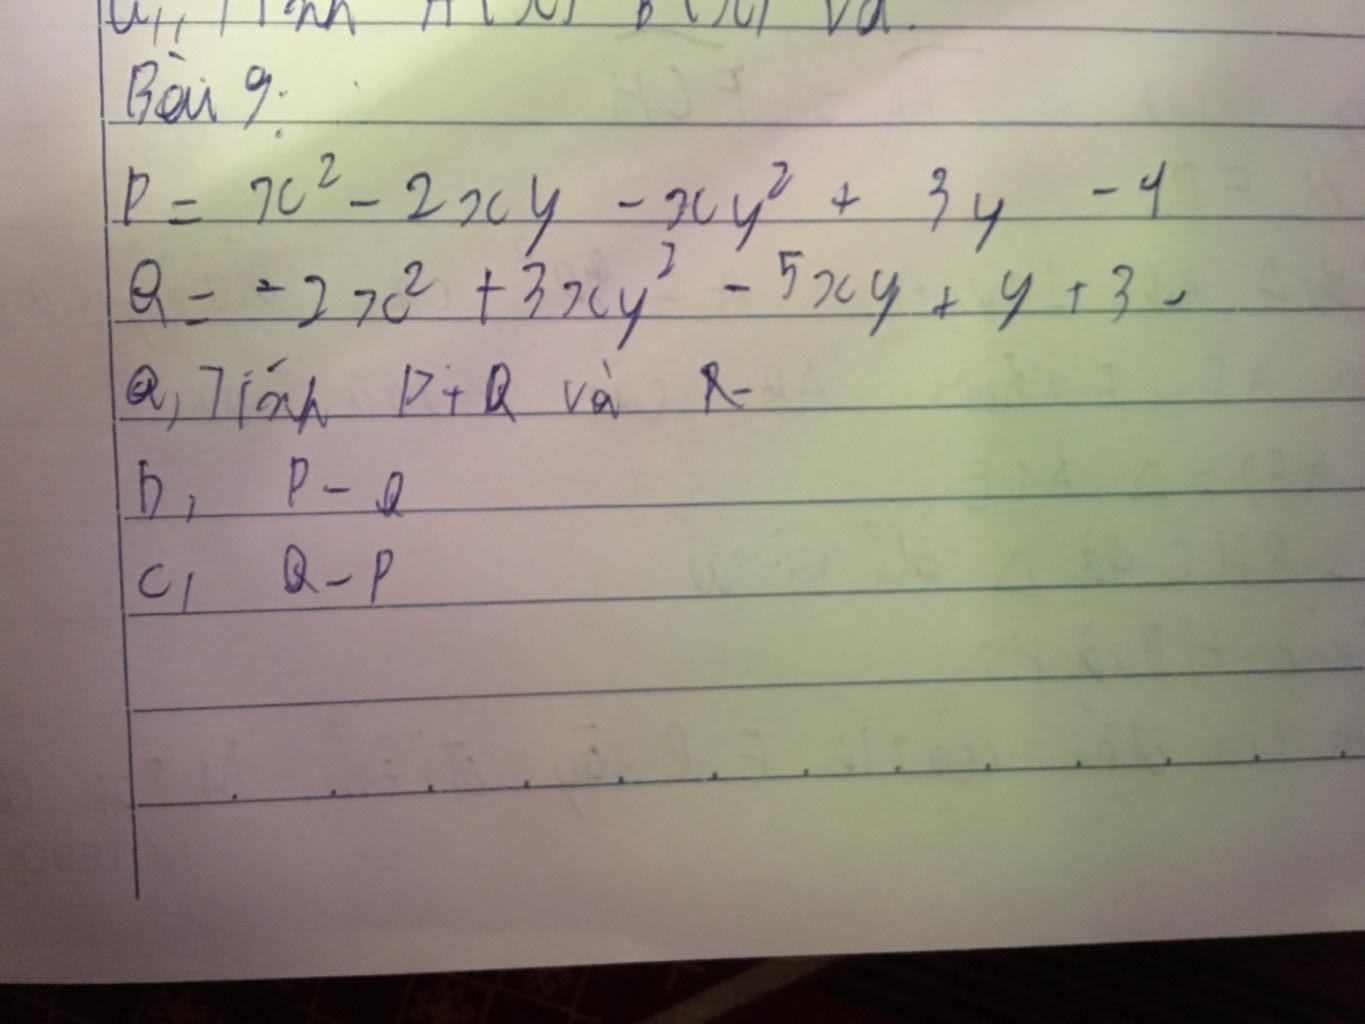 Tính A(x) B(x) và
Bài 9:
P = x² - 2xy - xy² + 3y - 1
Q = -2x² + 3xy² - 5xy + y + 3
a, Tính P + Q và
b, P - Q
c, Q - P